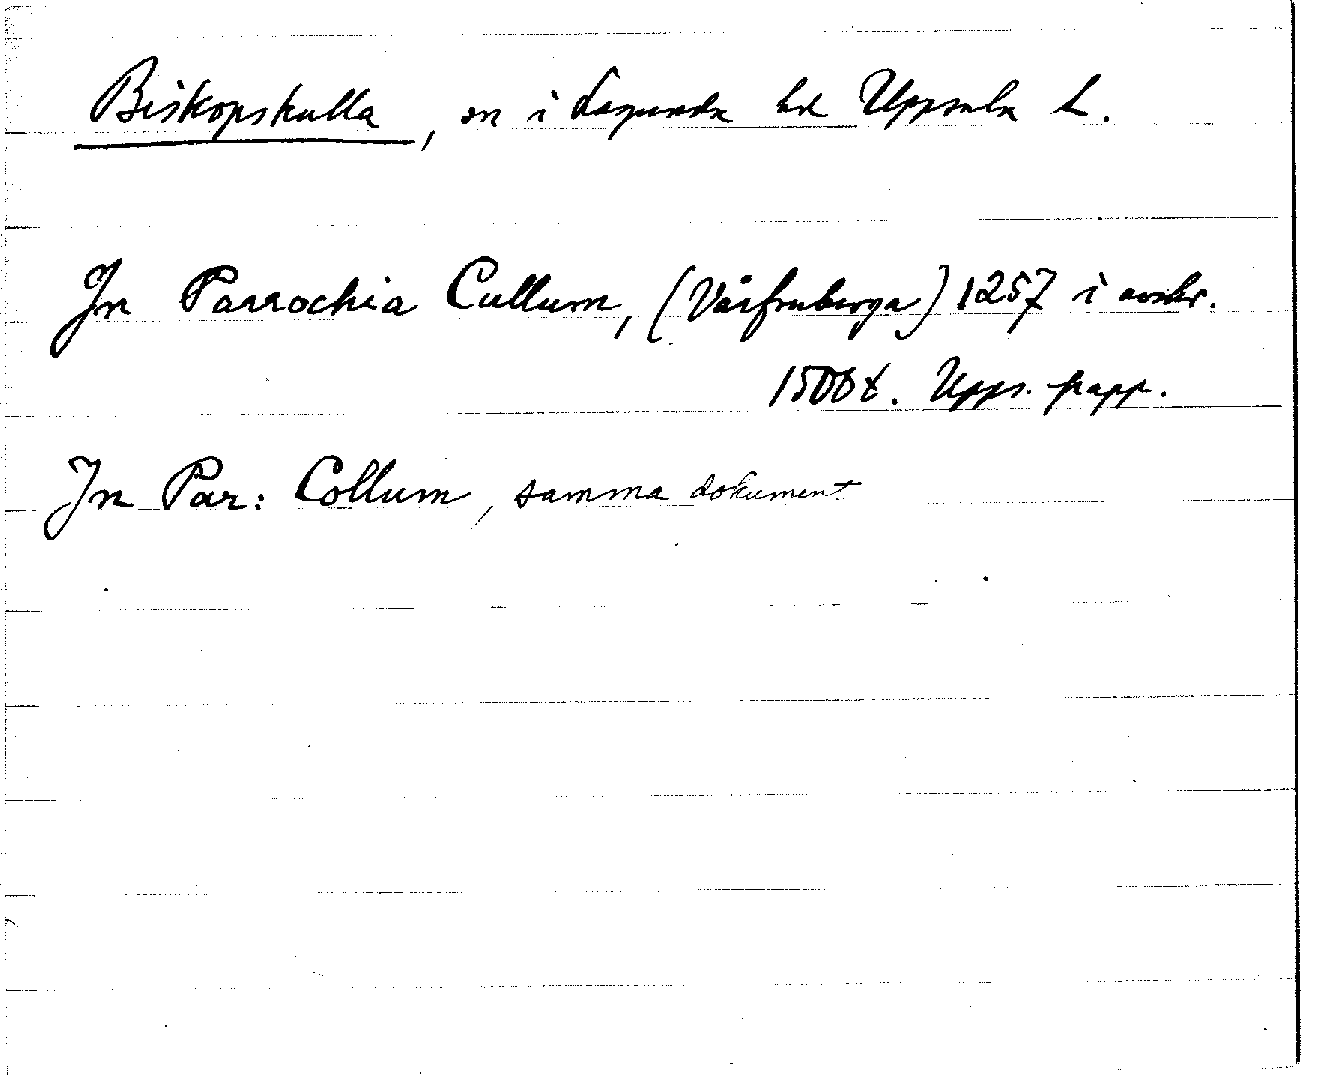 Biskopskulla, sn i Lagunda hd Uppsala L.
In Parrochia Cullum, (Vårfruberga) 1257 i avskr.
1500 t. Upps. papp.
In Par: Collum, samma dokument